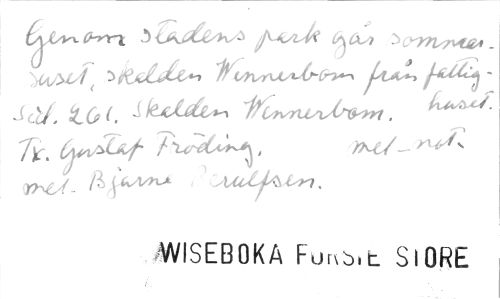 Genom stadens park går sommar-
suset, skalden Wennerbom från fattig-
Sid. 261. Skalden Wennerbom. huset.
Tx. Gustaf Fröding. mel-not.
mel. Bjarne
WISEBOKA FORSTE STORE